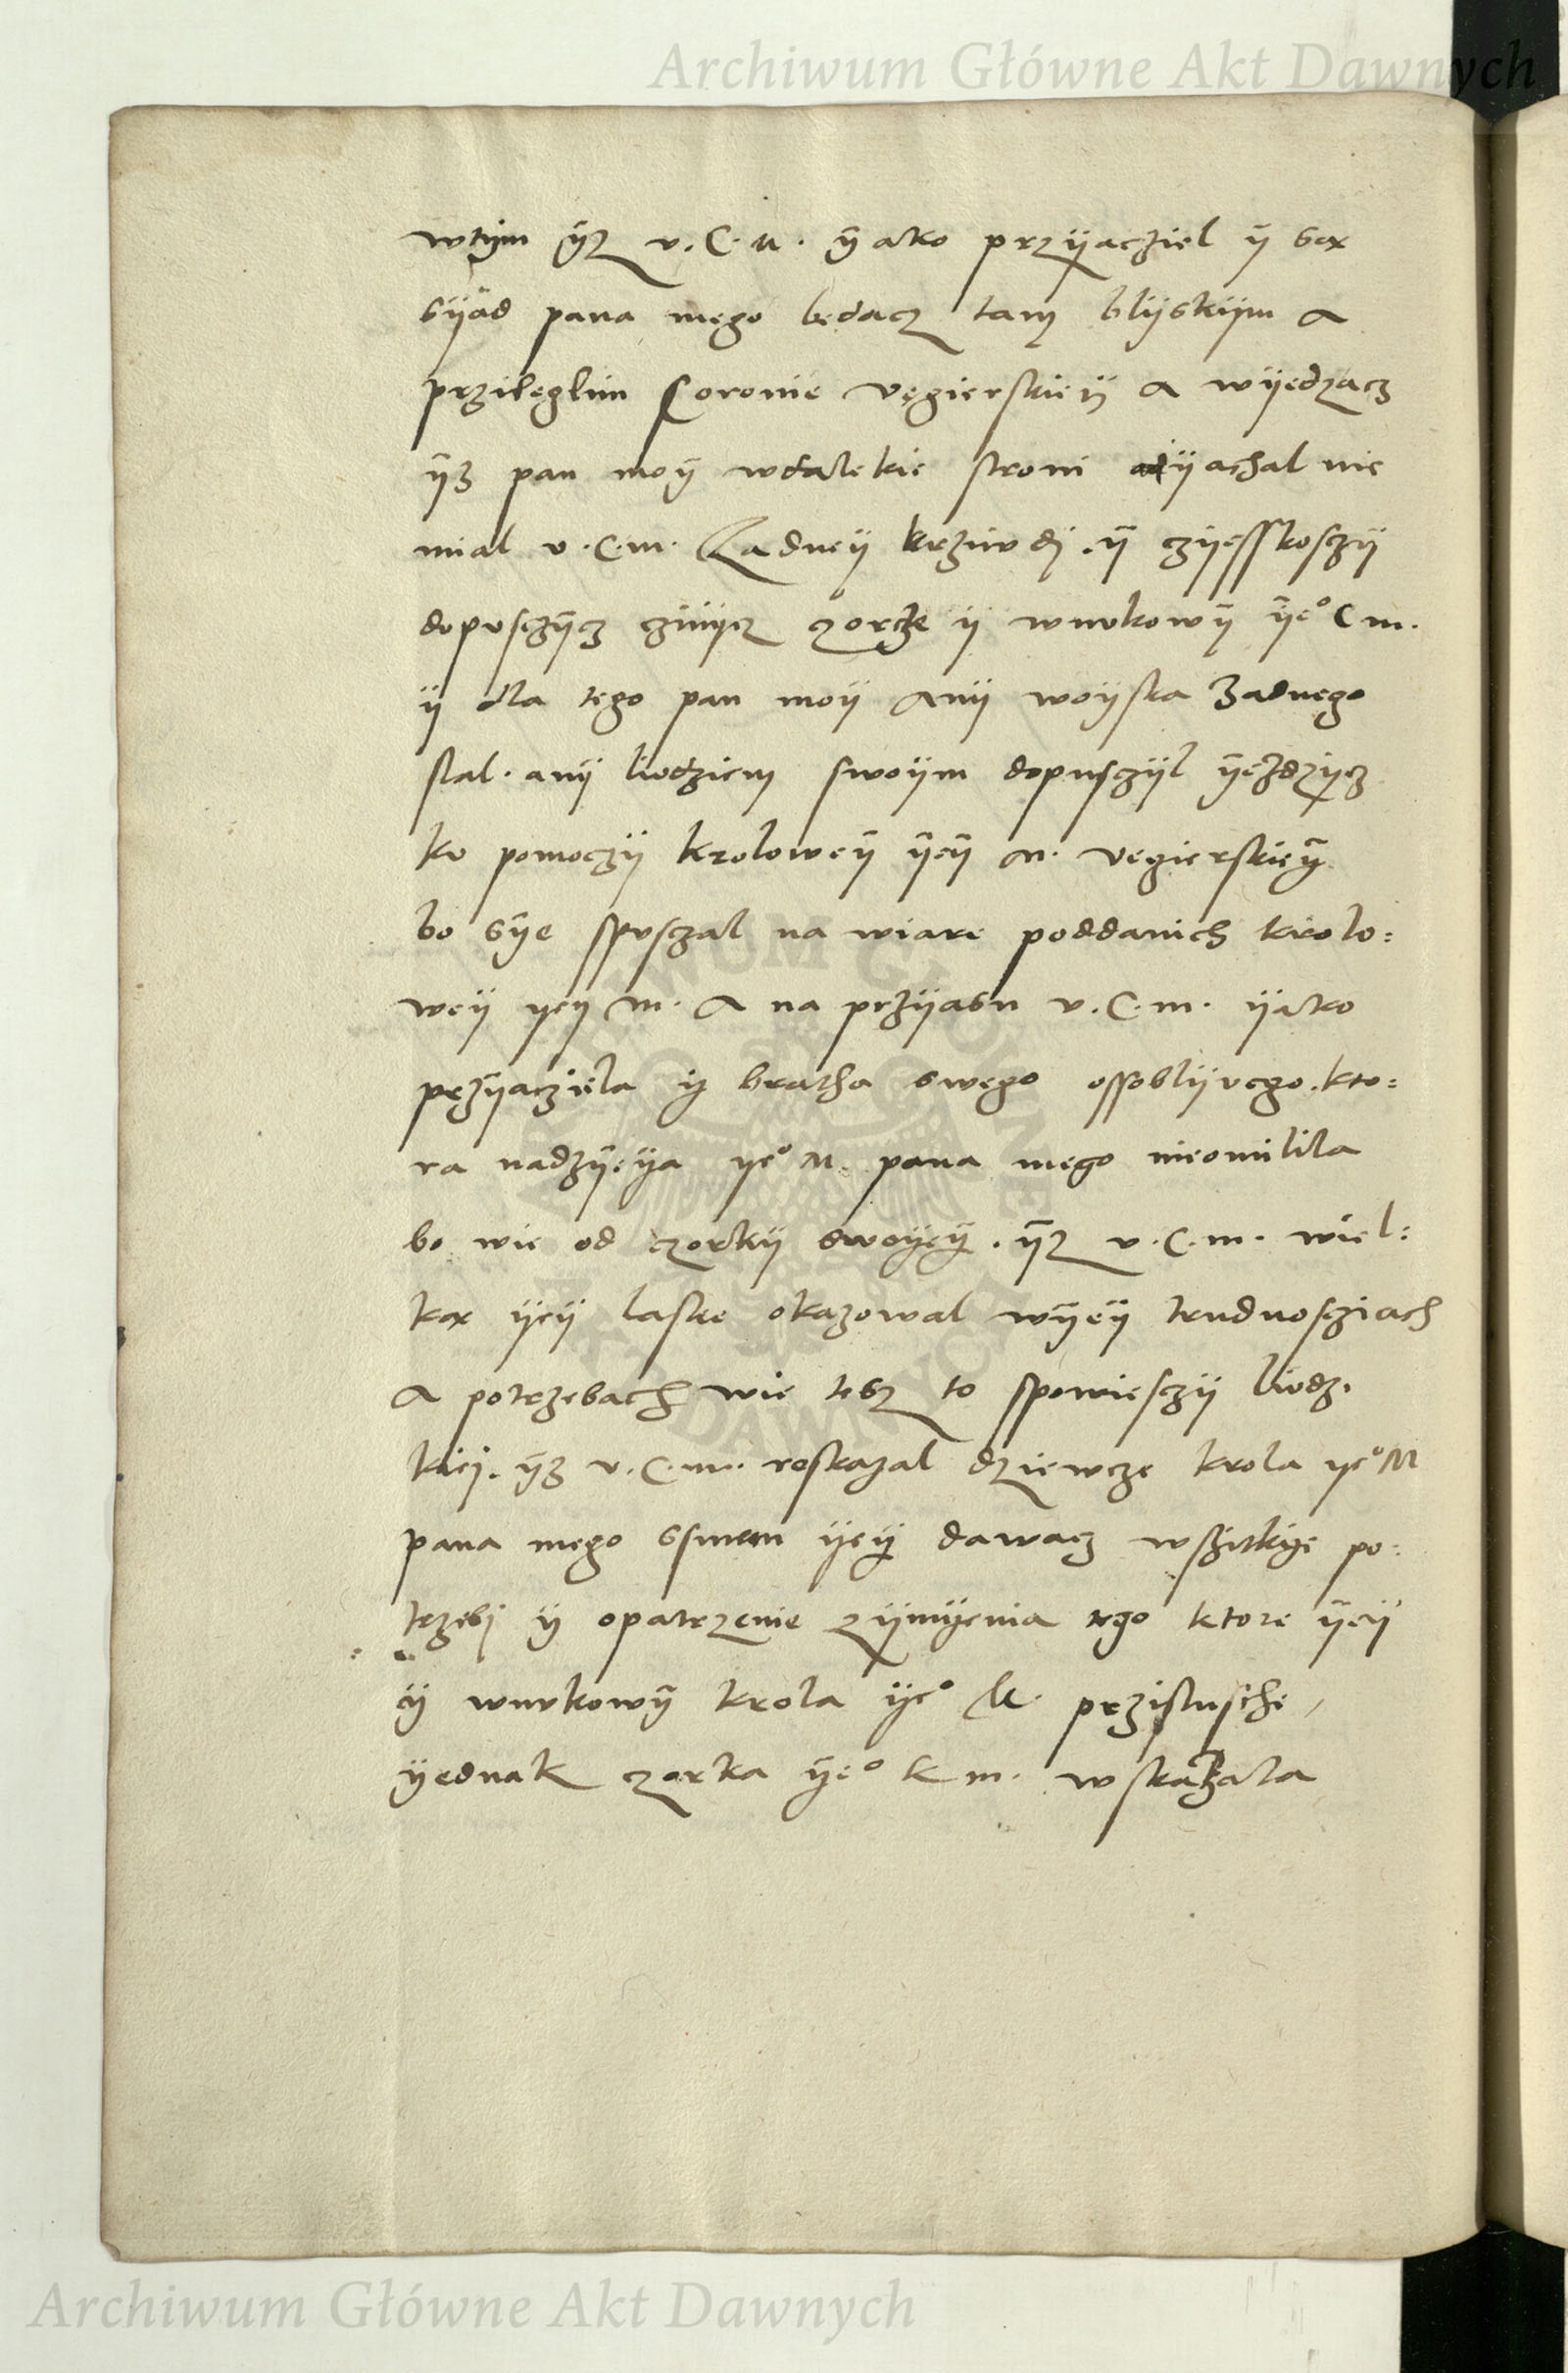 Archiwum Główne Akt Dawnych
wtym yz v. C. M. yako przyacziel y sa
syad pana mego bedacz tam blyskym a
przileglim Coronie vegierskiey a wyedzacz
yz pan moy wdalekie stroni odyachal nie
mial v. C. m. Zadney krziwdj y czyesskosczy
dopusczycz czinycz czorcze y wnukowy ye° C m.
y dla tego pan moy any woyska zadnego
slal. any liudziem swoym dopusczyl yezdzycz
ku pomoczy krolowey yey M. vegierskiey
bo sye spusczal na wiare poddanich krolo:
wey yey m. a na przyasn v. C. m. yako
przyacziela y bratha swego ossoblyvego. kto:
ra nadzyeya ye° M. pana mego nieomilila
bo wie od czorky swoyey. yz v. C. m. wiel:
ka yey laske okazowal wyey trudnosciach
a potrzebach wie tesz to spowiesczy liudz.
kiej. yz v. C. m. roskazal dziewcze krola ye° M
pana mego synem yey dawacz wszitkye po:
trzebj y opatrzenie z ymyenia tego ktore yey
y wnukowy krola ye° M. przislusche,
yednak czorka ye° K m. wskazala
Archiwum Główne Akt Dawnych